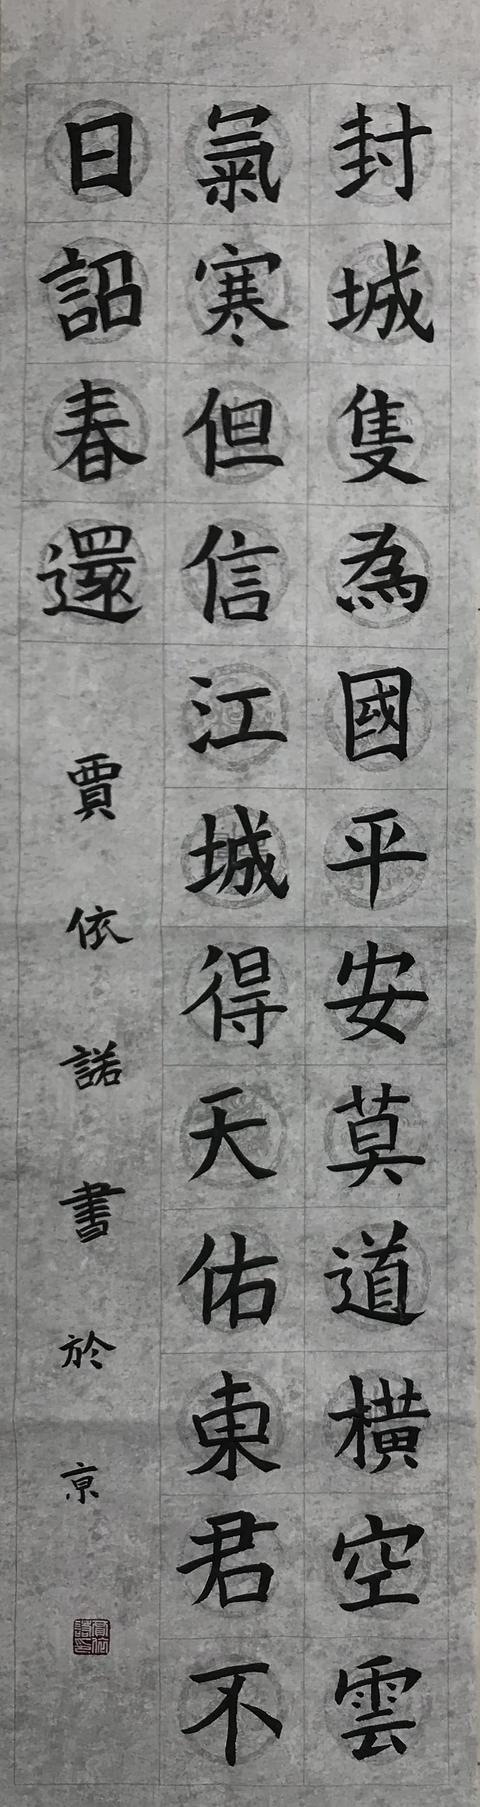 封城隻為國平安莫道橫空雲
氣寒但信江城得天佑東君不
日詔春還
賈依諾書於京